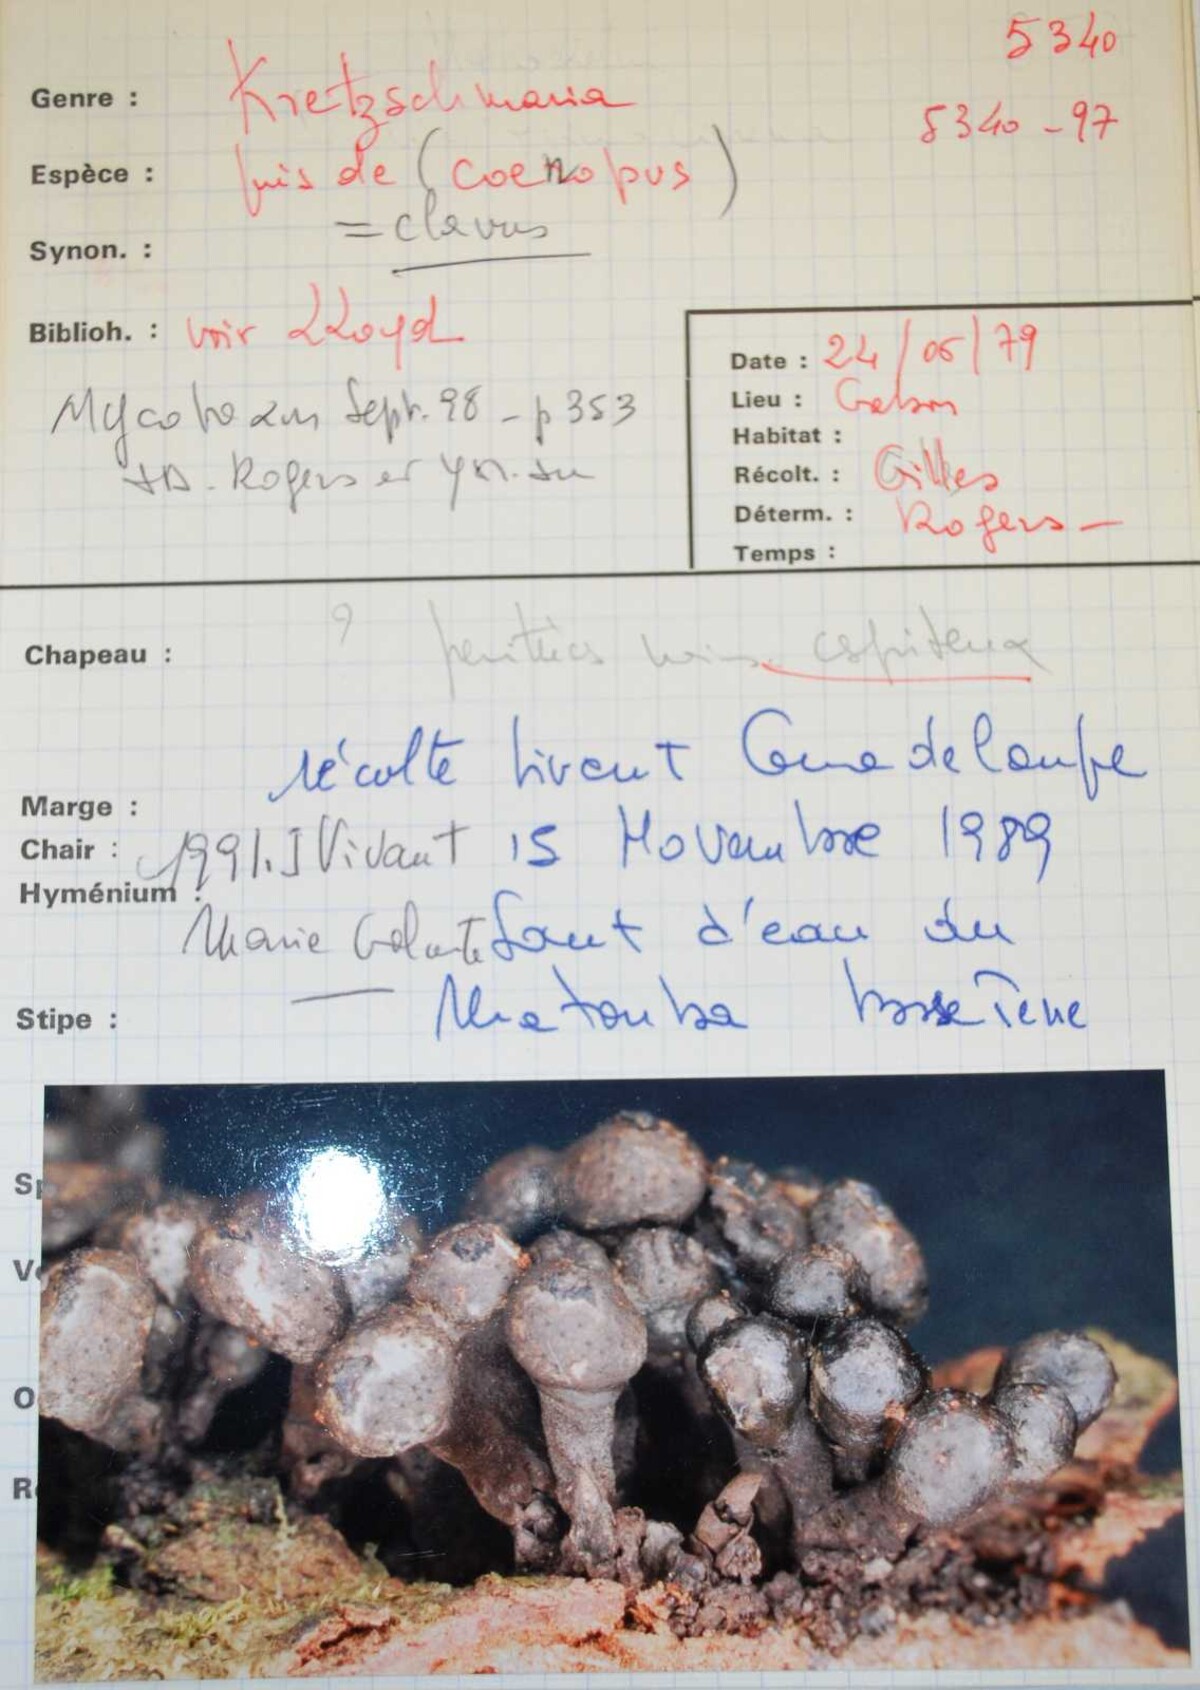 5340
Genre : Kretzschmaria
5340 - 97
Espèce : près de (coenopus)
= clavus
Synon. :
Biblioh. : voir LLoyd
Date : 24/05/79
Lieu : Gabon
Mycotaxon Sept. 98 - p 353
JD. Rogers et YM. Ju
Habitat :
Récolt. : Gilles
Déterm. : Rogers -
Temps :
?
Chapeau : périthèces noirs cespiteux
récolte Vivant Guadeloupe
Marge :
Chair : 1991. J Vivant 15 Novembre 1989
Hyménium :
Marie Galante Saut d'eau du
Stipe : Matouba basse Terre
Sp
O